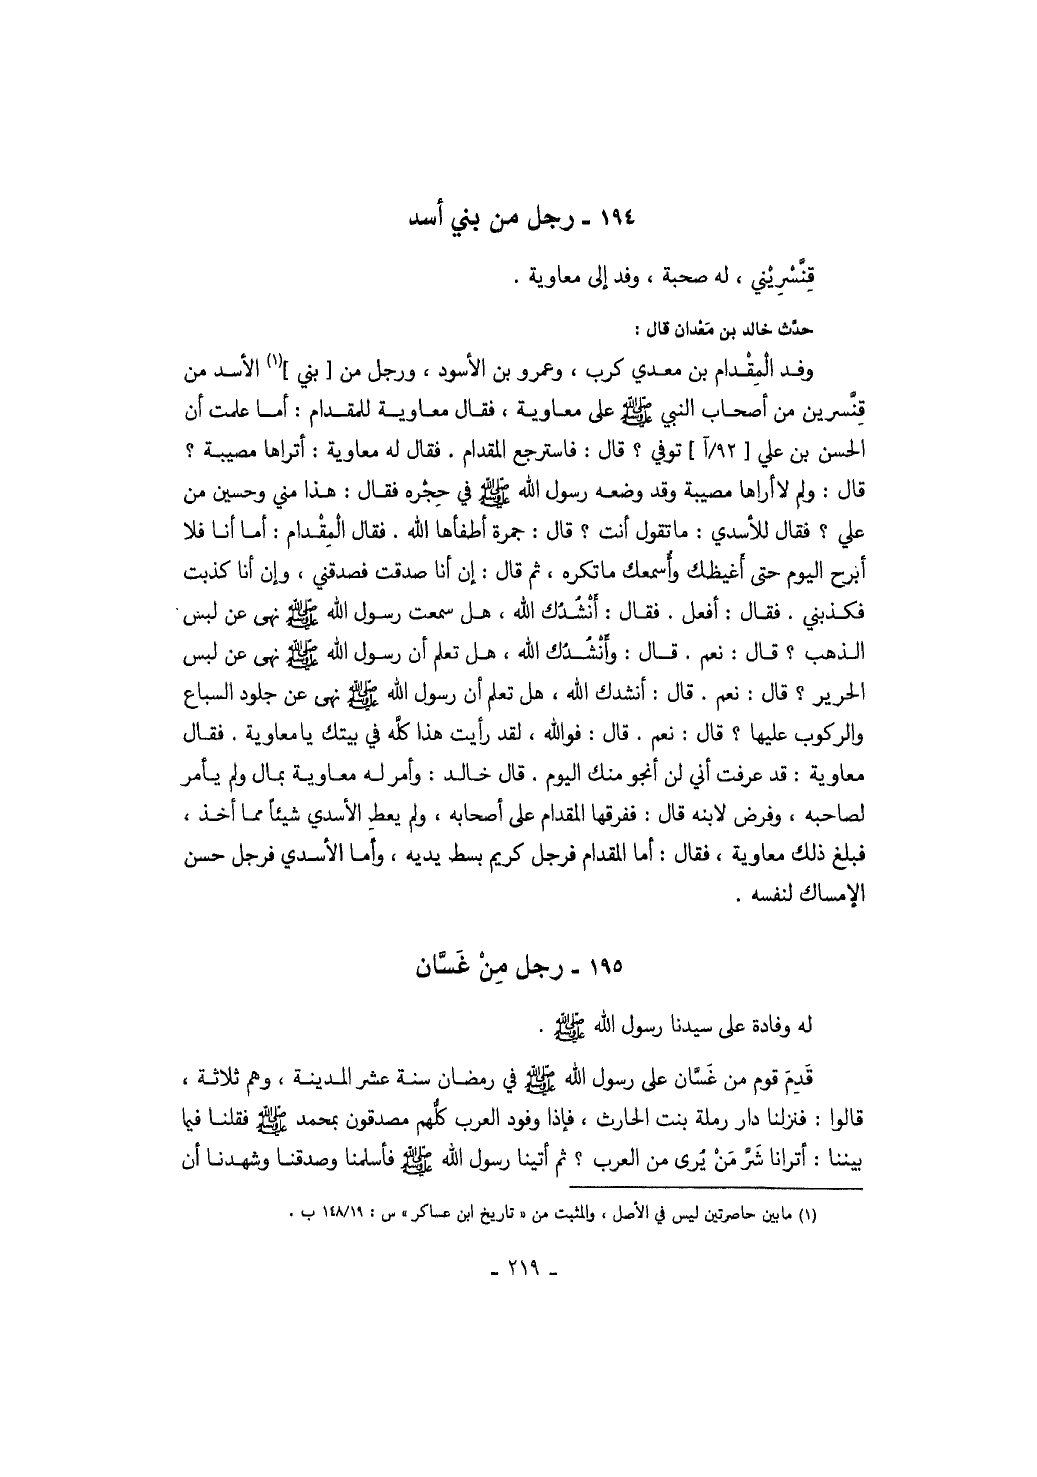 ١٩٤ ـ رجل من بني أسد
قِنَّسْرِيْني ، له صحبة ، وفد إلى معاوية .
حدَّث خالد بن مَعْدان قال :
وفـد الْمِقْـدام بن معـدي كرب ، وعمرو بن الأسود ، ورجل من [ بني ](١) الأسـد من
قِنَّسرين من أصحـاب النبي ﷺ على معـاويـة ، فقـال معـاويـة للمقـدام : أمـا علمت أن
الحسن بن علي [ ٩٢/آ ] توفي ؟ قال : فاسترجع المقدام . فقال له معاوية : أتراها مصيبـة ؟
قال : ولم لاأراها مصيبة وقد وضعـه رسول الله ﷺ في حِجْره فقـال : هـذا مني وحسين من
علي ؟ فقال للأسدي : ماتقول أنت ؟ قال : جمرة أطفأها الله . فقال الْمِقْـدام : أمـا أنـا فلا
أبرح اليوم حتى أَغيظك وأُسمعك ماتكره ، ثم قال : إن أنا صدقت فصدقني ، وإن أنا كذبت
فكـذبني . فقـال : أفعل . فقـال : أَنْشُـدُك الله ، هـل سمعت رسـول الله ﷺ نهى عن لبس
الـذهب ؟ قـال : نعم . قـال : وأَنْشُـدُك الله ، هـل تعلم أن رسـول الله ﷺ نهى عن لبس
الحرير ؟ قال : نعم . قال : أنشدك الله ، هل تعلم أن رسول الله ﷺ نهى عن جلود السباع
والركوب عليها ؟ قال : نعم . قال : فوالله ، لقد رأيت هذا كلَّه في بيتك يامعاوية . فقـال
معاوية : قد عرفت أني لن أنجو منك اليوم . قال خـالـد : وأمر لـه معـاويـة بمـال ولم يـأمر
لصاحبه ، وفرض لابنه قال : ففرقها المقدام على أصحابه ، ولم يعطِ الأسدي شيئاً ممـا أخـذ ،
فبلغ ذلك معاوية ، فقال : أما المقدام فرجل كريم بسط يديه ، وأمـا الأسـدي فرجل حسن
الإمساك لنفسه .
١٩٥ ـ رجل مِنْ غَسَّان
له وفادة على سيدنا رسول الله ﷺ .
قَدِمَ قوم من غَسَّان على رسول الله ﷺ في رمضـان سنـة عشر المـدينـة ، وهم ثلاثـة ،
قالوا : فنزلنا دار رملة بنت الحارث ، فإذا وفود العرب كلُّهم مصدقون بمحمد ﷺ فقلنـا فيما
بيننا : أترانا شَرَّ مَنْ يُرى من العرب ؟ ثم أتينا رسول الله ﷺ فأسلمنا وصدقنـا وشهـدنـا أن
(١) مابين حاصرتين ليس في الأصل ، والمثبت من « تاريخ ابن عساكر » س : ١٤٨/١٩ ب .
ـ ٢١٩ ـ